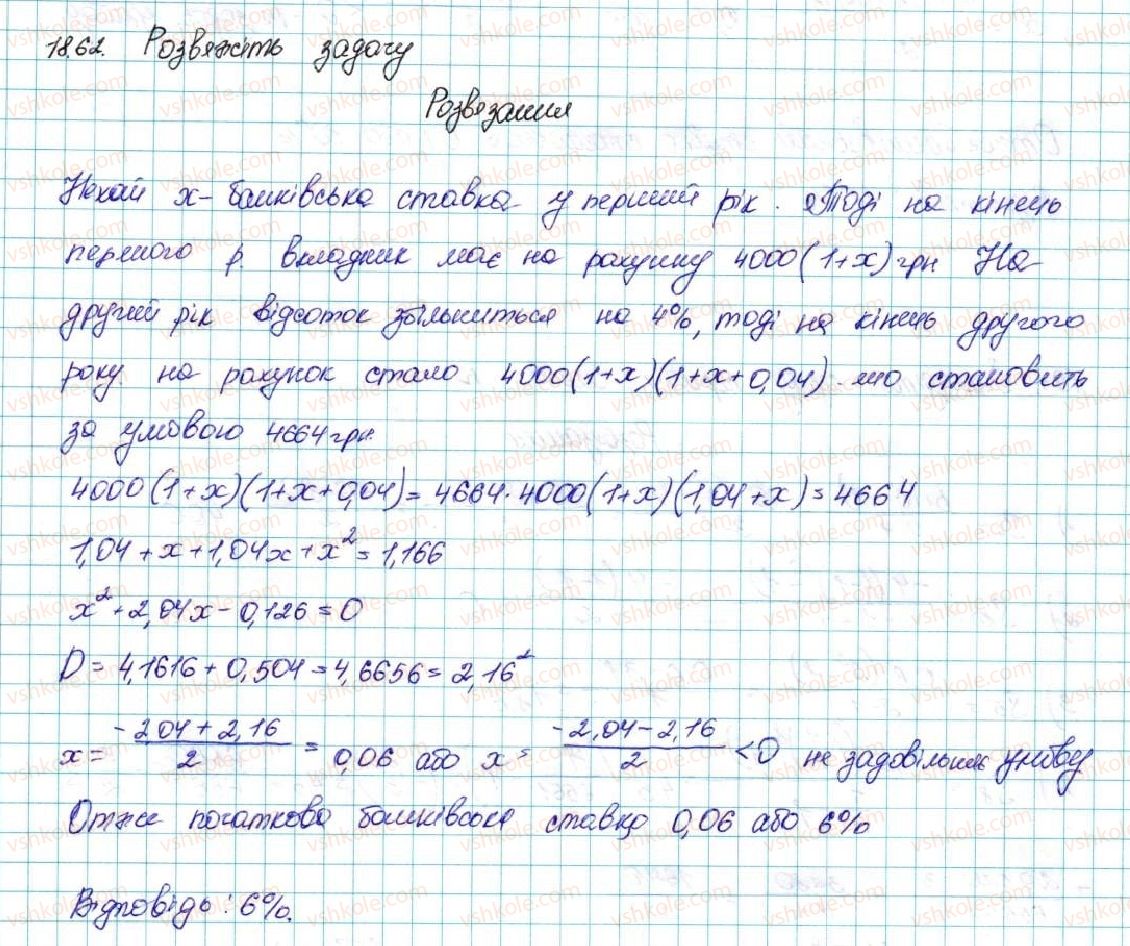 18.62. Розвяжіть задачу
Розвязання
Нехай х - банківська ставка у перший рік. Тоді на кінець
першого р. вкладник має на рахунку 4000(1+x) грн На
другий рік відсоток збільшиться на 4%, тоді на кінець другого
року на рахунок стало 4000(1+x)(1+x+0,04) що становить
за умовою 4664 грн.
4000(1+x)(1+x+0,04) = 4664. 4000(1+x)(1,04+x) = 4664
1,04 + x + 1,04x + x² = 1,166
x² + 2,04x - 0,126 = 0
D = 4,1616 + 0,504 = 4,6656 = 2,16²
x = (-2,04 + 2,16)/2 = 0,06 або x = (-2,04 - 2,16)/2 < 0 не задовільняє умову
Отже початкова банківська ставка 0,06 або 6%
Відповідь: 6%.
vshkole.com